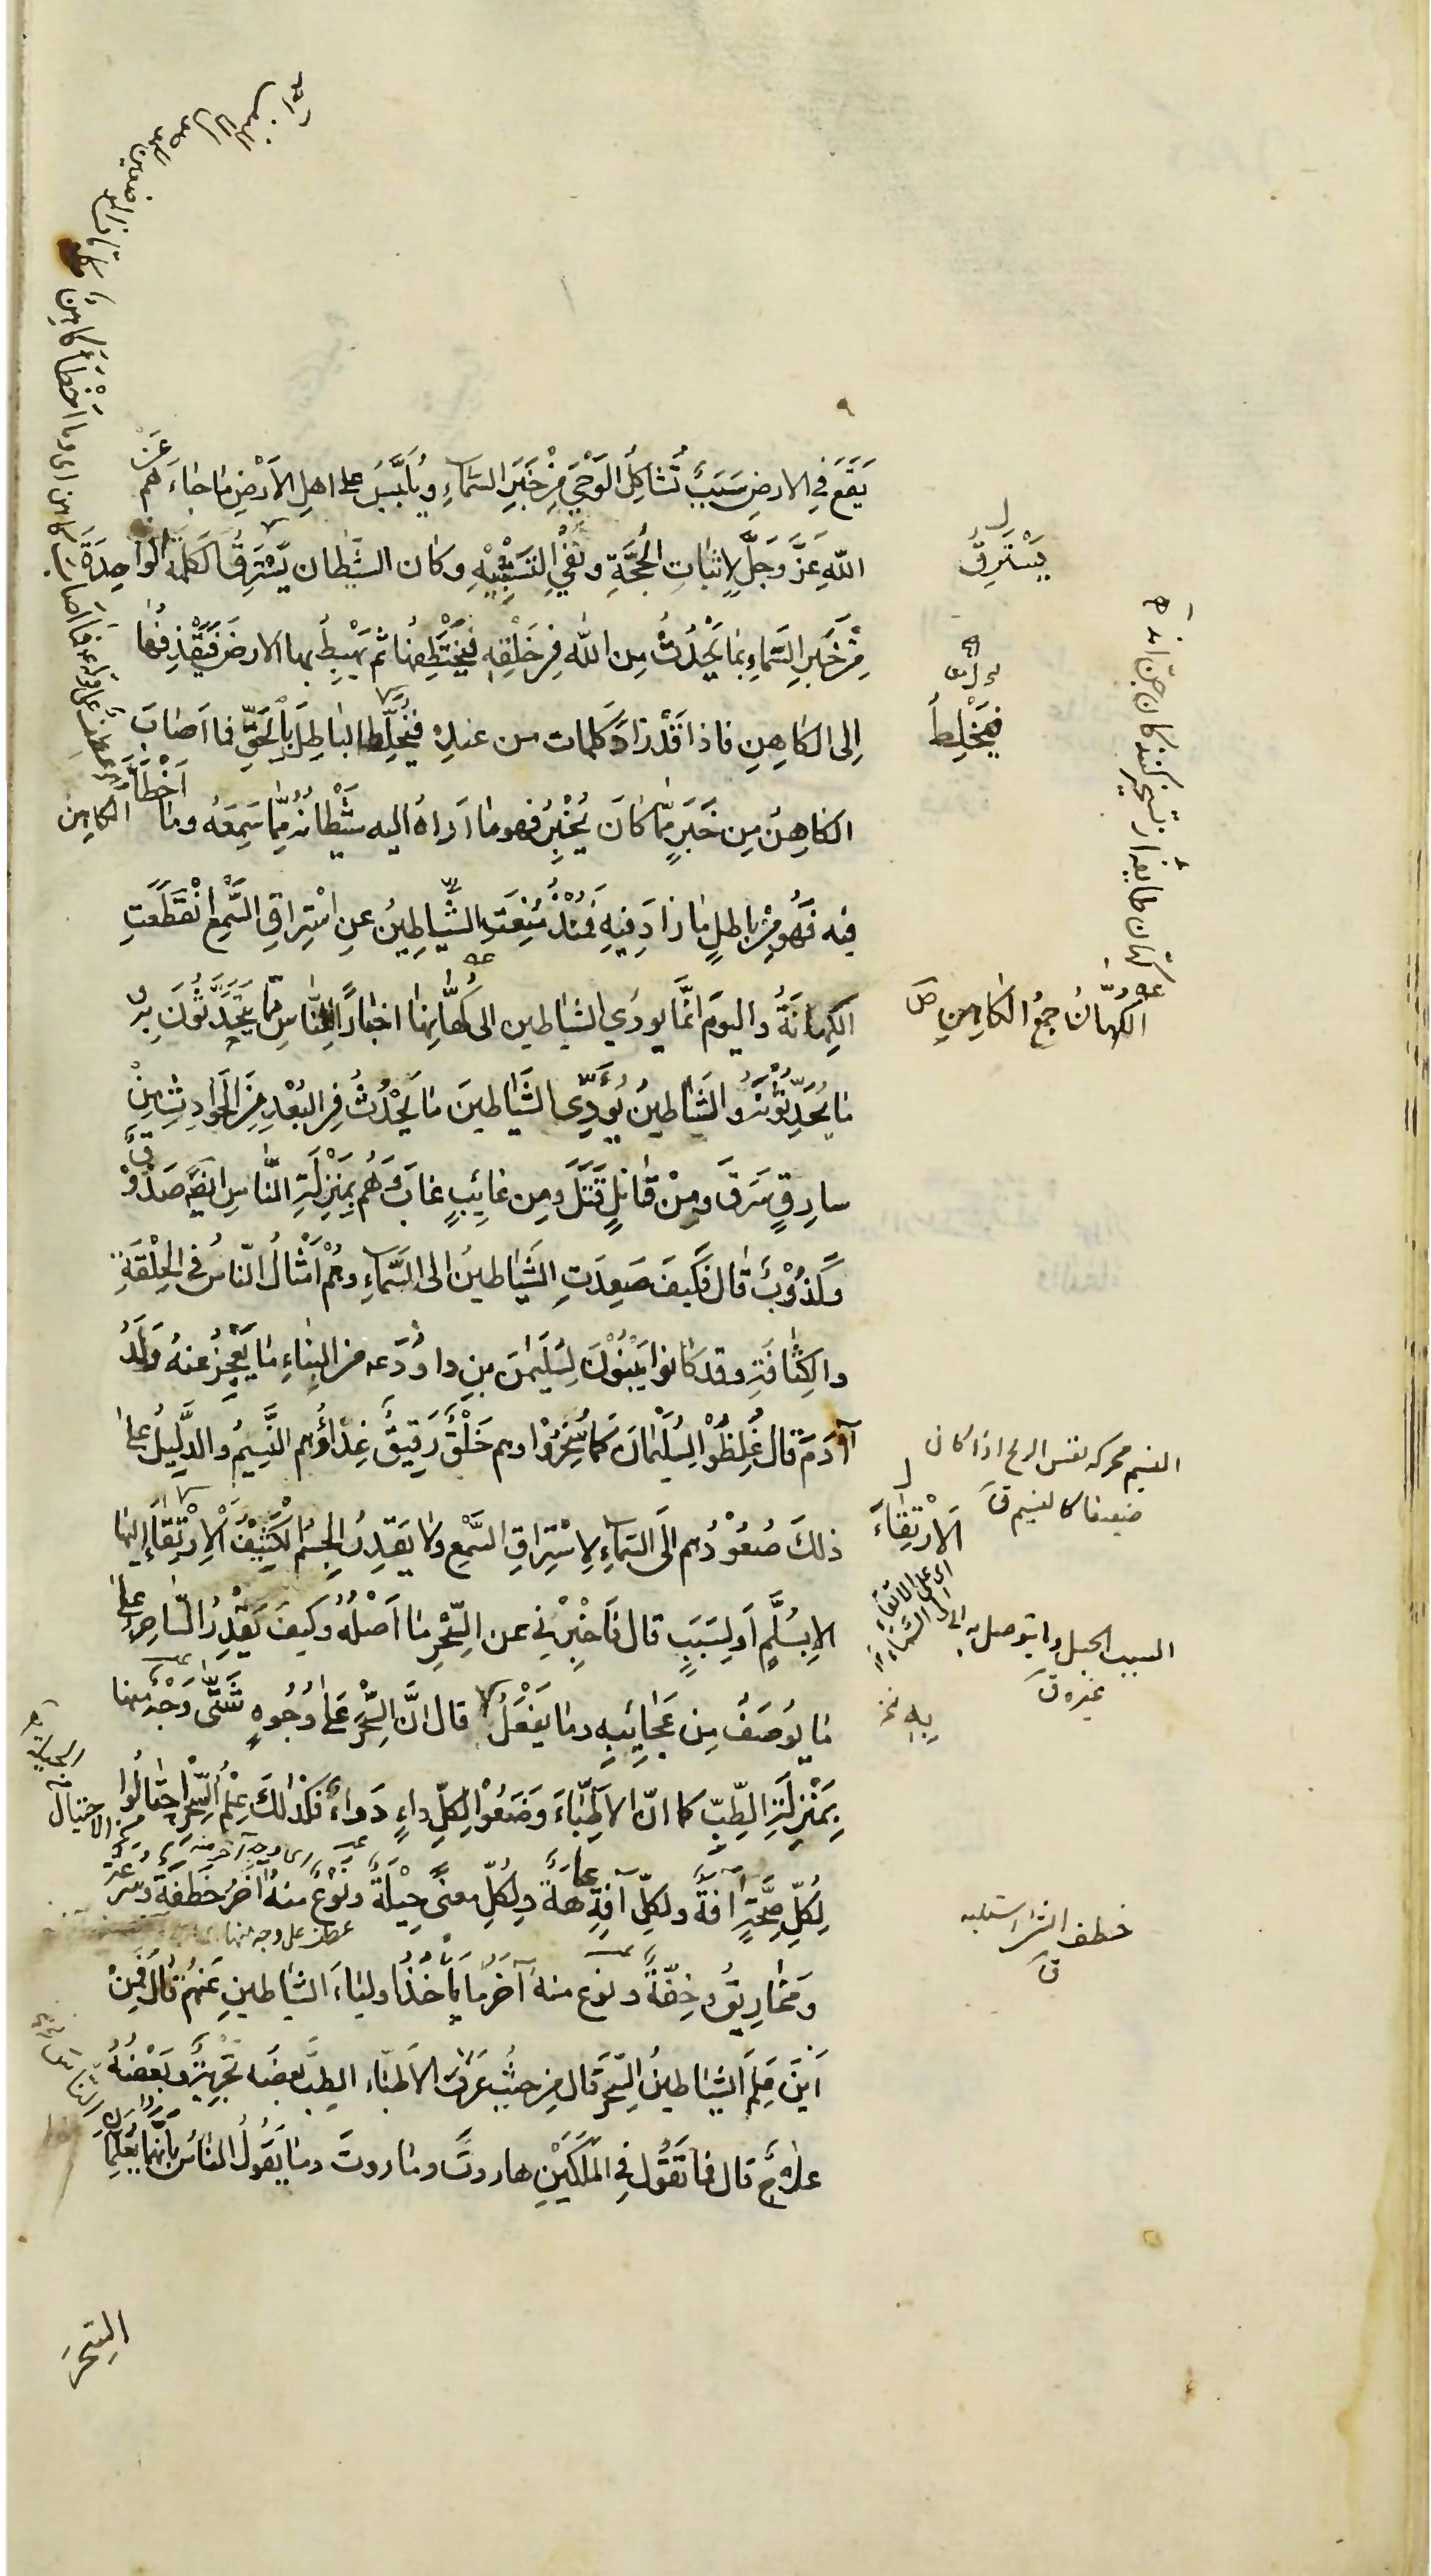 يَقَعَ في الارض سَبَبٌ تُشاكِلُ الوَحْيَ مِنْ خَبَرِ السَّماءِ ويُلَبَّسُ على اهلِ الاَرْضِ ما جاءَهم عَنْ
اللّهِ عَزَّ وَجَلَّ لِاِثباتِ الحُجَّةِ ونَفْيِ التَشْبيْهِ وكان الشَيْطان يَسْتَرِقُ الكلمةَ الواحِدَةَ
مِنْ خَبَرِ السَّماءِ بما يَحْدُثُ مِن اللّه في خَلْقِهِ فيَخْتَطِفُها ثم يَهْبِطُ بها الارضَ فَيَقْذِفُها
اِلى الكاهِنِ فاذا قَدْ زادَ كلمات من عندِه فيُخَلِّطُ الباطِلَ بِالْحَقِّ فما اَصابَ
الكاهِنُ مِن خَبَرٍ مِمّا كانَ يُخْبِرُ فهو ما ادّاهُ اليه شَيْطانُه مِمّا سَمِعَهُ وما اَخْطَأَ الكاهِنُ
فيه فَهُو مِنْ باطلِ ما زادَ فيهِ فَمُنْذُ مُنِعَتِ الشَّياطِينُ عنِ اسْتِراقِ السَّمْعِ انْقَطَعَتِ
الكِهانَةُ واليومَ انَّما يودّي الشياطين الى كُهّانِها اخباراً للنّاسِ مِمّا يَتَحَدَّثُونَ بِه
ما يُحَدِّثُوْنَهُ والشَياطينُ يُؤَدِّى الشَّياطينَ ما يَحْدُثُ في البُعْدِ مِنَ الحَوادِثِ مِنْ
سارِقٍ سَرَقَ ومِنْ قاتلٍ قَتَلَ ومِن غائِبٍ غابَ وَهُم بِمَنْزِلَةِ النّاسِ ايضاً صَدُوْقٌ
وكَذُوْبٌ قال فكَيفَ صَعِدَتِ الشَياطينُ الى السَّماءِ وهُمْ اَمْثالُ النّاسِ في الخِلْقَةِ
والكِثافَةِ وقد كانوا يَبْنُوْنَ لِسُلَيمٰنَ بنِ داوُدَ ع من البِناءِ ما يَعْجِزُ عنهُ وَلَدُ
آدَمَ قال غُلِّظُوْا لِسُلَيْمانَ كما سُخِّرُوْا وهم خَلْقٌ رَقيقٌ غِذاؤُهم النَّسِيمُ والدَّليلُ على
ذلكَ صُعُوْدُهم الَى السَّماءِ لِاسْتِراقِ السَّمْعِ ولا يَقدِرُ الجِسْمُ الكَثِيْفُ الاِرْتِقاءَ اِليها
الا بِسُلَّمٍ اَو لِسَبَبٍ قال فَاَخْبِرْني عن السِّحْرِ ما اَصْلُهُ وكيفَ يَقْدِرُ السّاحر على
ما يُوصَفُ مِن عَجائِبِهِ وما يَفْعَلُ قال انَّ السِّحْرَ عَلى وُجُوهٍ شَتّى وَجْهٌ منها
بِمَنْزِلَةِ الطِّبِّ كما انّ الاَطِبّاءَ وَضَعُوْا لِكلِّ داءٍ دَواءً فكذٰلكَ عِلْمُ السِّحْرِ احْتالُوا
لِكُلِّ صِحَّةٍ آفةً ولكلِّ آفةٍ عاهَةً ولِكُلِّ معنىً حِيْلَةً ونَوْعٌ منهُ آخَرُ خَطْفَةٌ وسُرْعَةٌ
ومَخاريقُ وخِفّةٌ ونوع منه آخَرُ ما يَأْخُذُ اولياءَ الشَياطينِ عَنهُم قال فَمِنْ
اَيْنَ عَلِمَ الشياطينُ السِّحْرَ قال مِن حيثُ عَرَفَ الاَطبّاء الطبَّ بعضُه تَجْرِبةٌ وبَعْضُهُ
علاجٌ قال فما تَقُوْلُ في المَلَكَيْنِ هاروتَ وماروتَ وما يقولُ النّاسُ بأنّهما يُعلّمانِ
السِّحْرَ
يَسْتَرِقُ
فيَخْلِطُ
الكهّانُ جمعُ الكاهِنِ
النسيم محركه نفس الريح اذا كان
ضعيفا كالنسيم ق
الاِرْتِقاءَ
السبب الحبل وما يتوصل به الى
غيره ق
خطف الشئ استلبه
ق
عطف على وجه منها